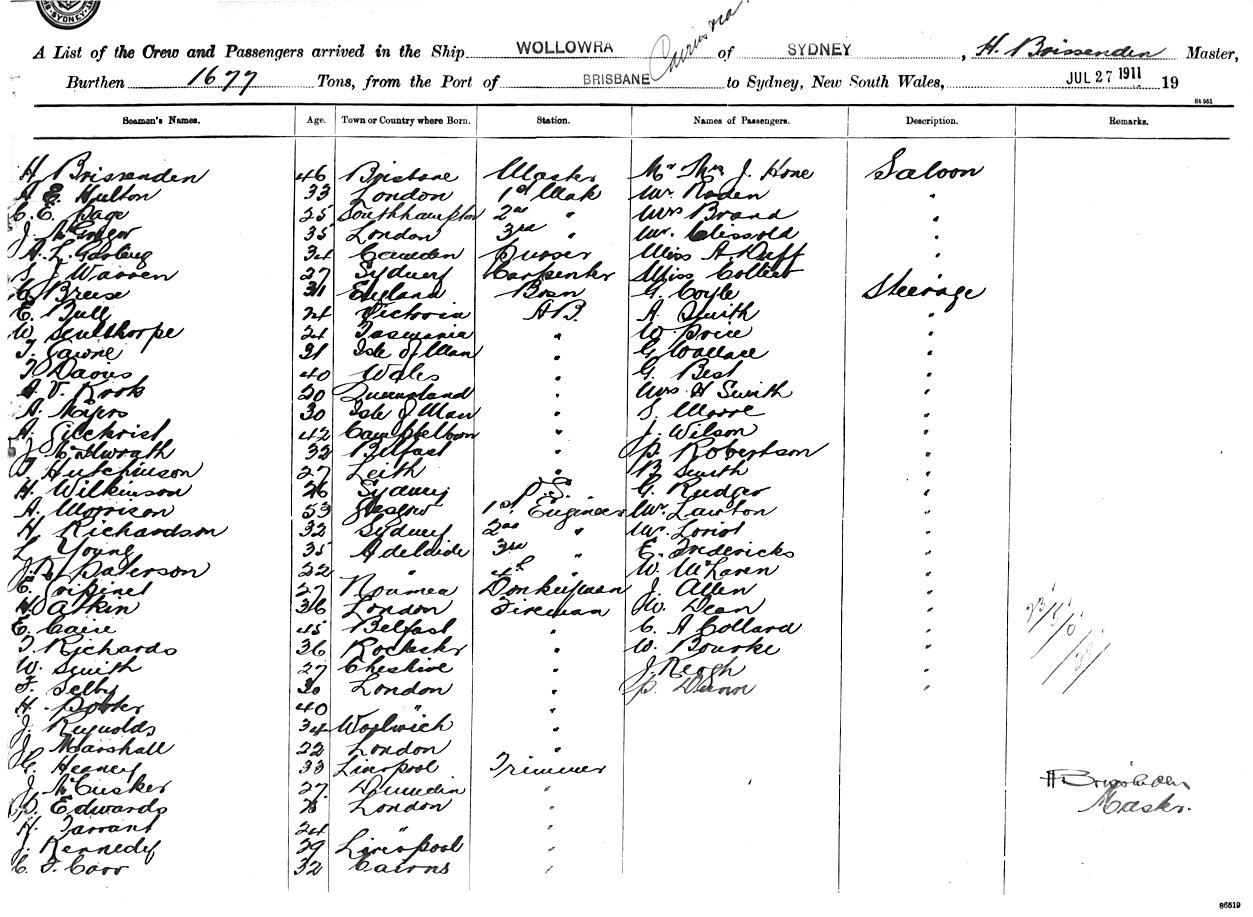 SYDNEY
A List of the Crew and Passengers arrived in the Ship WOLLOWRA of SYDNEY, H. Brissenden Master,
Burthen 1677 Tons, from the Port of BRISBANE to Sydney, New South Wales, JUL 27 1911 19
St 951
Seamen's Names. Age. Town or Country where Born. Station. Names of Passengers. Description. Remarks.
H Brissenden 46 Brisbane Master Mr Mrs J. Hone Saloon
A E Hulton 33 London 1st Mate Mr Roden "
C. E. Page 25 Southhampton 2nd " Mrs Brand "
J McGregor 35 London 3rd " Mr Clissold "
A. L. 34 Camden Purser Miss A Duff "
S J Warren 27 Sydney Carpenter Miss Collett "
Breese 31 England Bosn G. Coyle Steerage
E. Bull 24 Victoria A B. A. Smith "
W Sculthorpe 24 Tasmania " W. Price "
T. Gawne 31 Isle of Man " G Wallace "
T Davies 40 Wales " G. Best "
A V. Rook 20 Queensland " Mrs H Smith "
A. Myers 30 Isle of Man " S. Moore "
A. Gilchrist 42 Campbeltown " J. Wilson "
J McIlwrath 32 Belfast " P. Robertson "
T Hutchinson 27 Leith " B Smith "
H Wilkinson 26 Sydney O. S. G. Rudger "
A. Morrison 53 Glasgow 1st Engineer Mr Lawton "
H Richardson 32 Sydney 2nd " Mr Loriot "
L Young 35 Adelaide 3rd " E. Fredericks "
J. R. Paterson 22 " 4th " W. McLaren "
E. 27 Noumea Donkeyman J. Allen "
H Atkin 36 London Fireman W. Dean "
E. Caire 45 Belfast " C. A Collard "
T. Richards 36 Rochester " W. Bourke "
W. Smith 27 Cheshire " J. Keogh "
F. Selby 30 London " P. Dunn "
H. Potter 40 " "
J. Reynolds 34 Woolwich "
J. Marshall 22 London "
G. Heaney 33 Liverpool Trimmer
J. McCusker 27 Dunedin "
D. Edwards London "
H. Tarrant 24 " "
J. Kennedy 29 Liverpool "
C. F. Carr 32 Cairns "
H Brissenden
Master.
86519